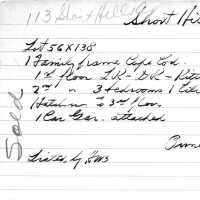 113 Short Hills
Short Hi
Lot 56 X 138
1 Family frame Cape Cod.
1st floor LR - DR - Kitc
2nd " 3 bedrooms 1 tile
Hatch to 3rd floor
1 Car Gar. attached
Sold
Owne
Listed by